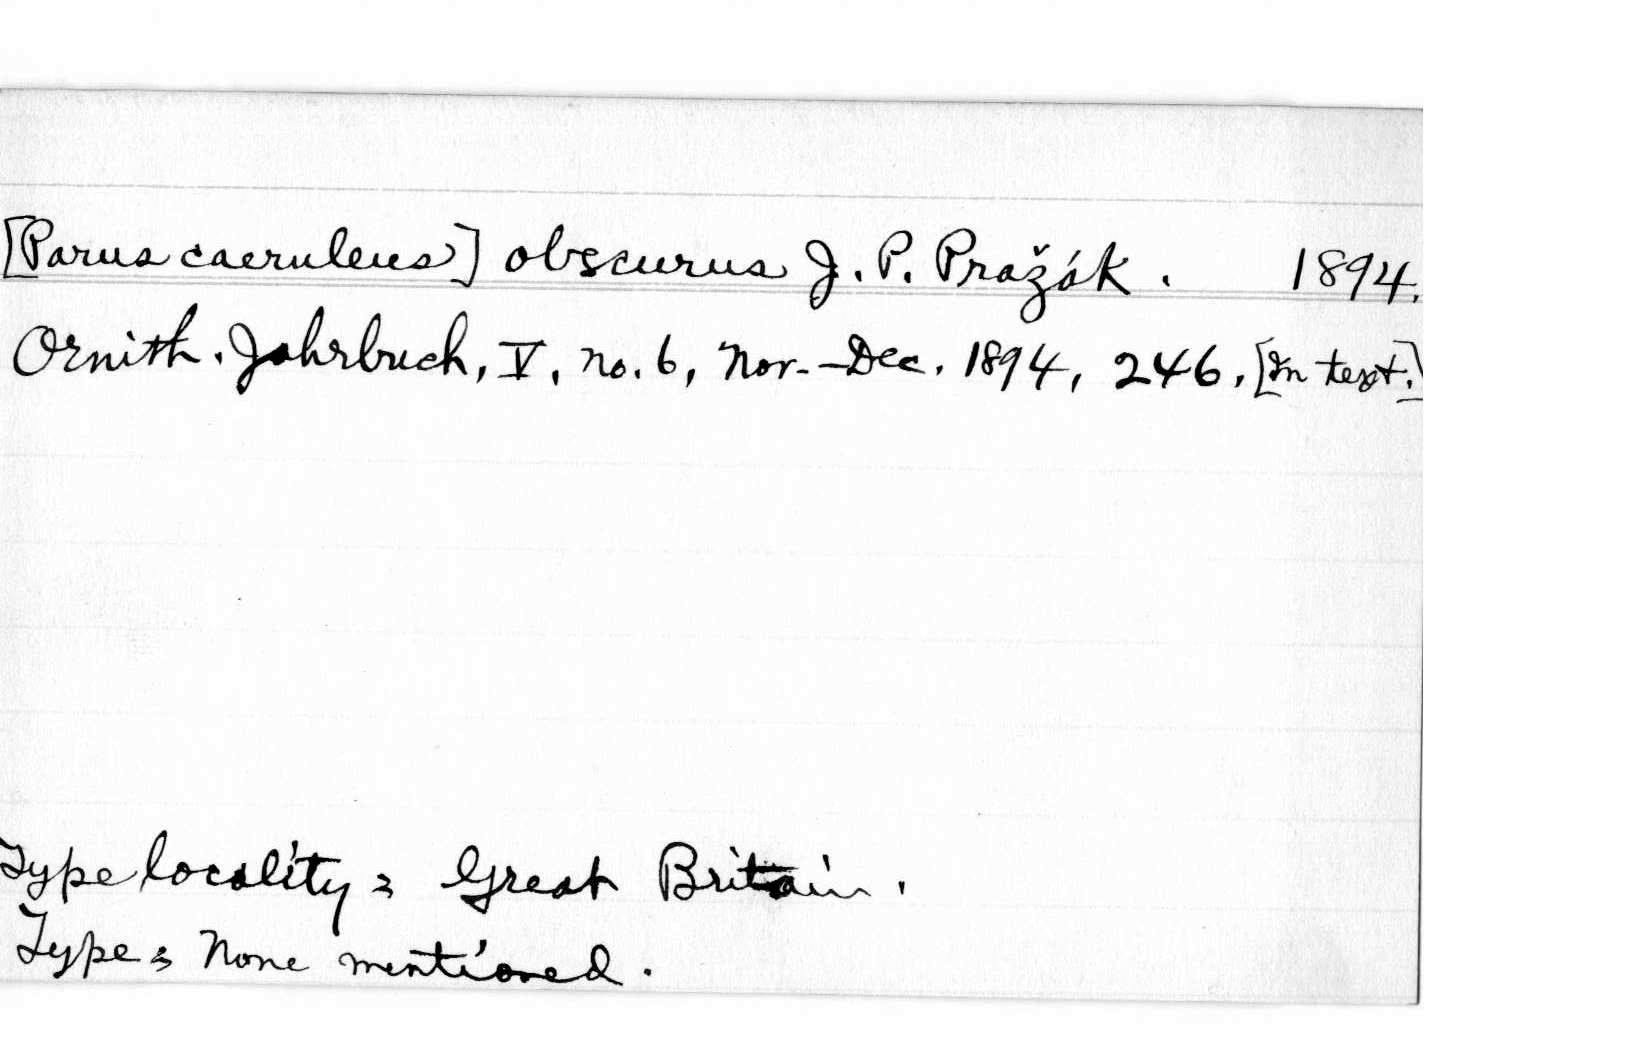 [Parus caeruleus] obscurus J. P. Pražák. 1894.
Ornith. Jahrbuch, V, no. 6, Nov.-Dec. 1894, 246, [In text.]
Type locality = Great Britain.
Type = None mentioned.